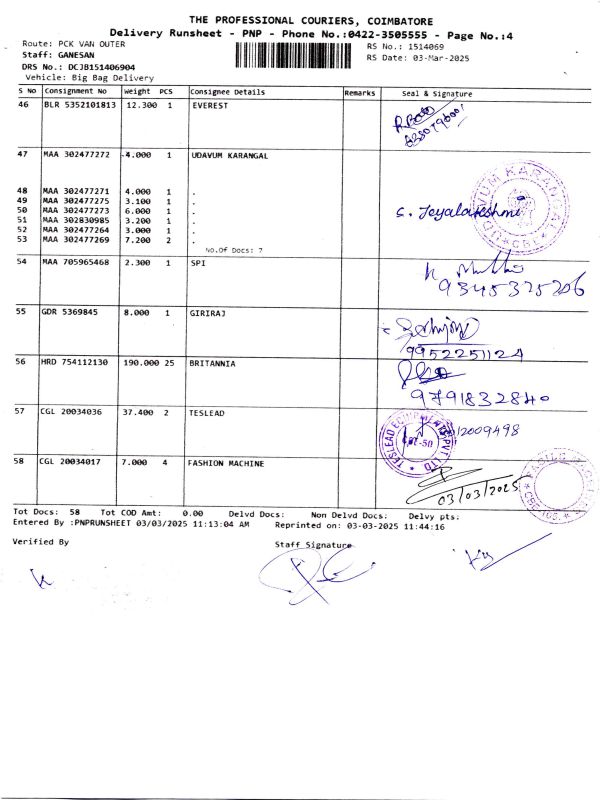 THE PROFESSIONAL COURIERS, COIMBATORE
Delivery Runsheet - PNP - Phone No.:0422-3505555 - Page No.:4
Route: PCK VAN OUTER RS No.: 1514069
Staff: GANESAN RS Date: 03-Mar-2025
DRS No.: DCJB151406904
Vehicle: Big Bag Delivery
S No Consignment No Weight PCS Consignee Details Remarks Seal & Signature
46 BLR 5352101813 12.300 1 EVEREST
47 MAA 302477272 4.000 1 UDAVUM KARANGAL
48 MAA 302477271 4.000 1 .
49 MAA 302477275 3.100 1 .
50 MAA 302477273 6.000 1 .
S. Jeyalakshmi
51 MAA 302830985 3.200 1 .
52 MAA 302477264 3.000 1 .
53 MAA 302477269 7.200 2 .
No.Of Docs: 7
UDAVUM KARANGAL
54 MAA 705965468 2.300 1 SPI
9345325206
55 GDR 5369845 8.000 1 GIRIRAJ
9952251124
56 HRD 754112130 190.000 25 BRITANNIA
9791832840
57 CGL 20034036 37.400 2 TESLEAD
TESLEAD EQUIPMENTS PVT LTD
12009498
58 CGL 20034017 7.000 4 FASHION MACHINE
03/03/2025
Tot Docs: 58 Tot COD Amt: 0.00 Delvd Docs: Non Delvd Docs: Delvy pts:
Entered By :PNPRUNSHEET 03/03/2025 11:13:04 AM Reprinted on: 03-03-2025 11:44:16
Verified By Staff Signature